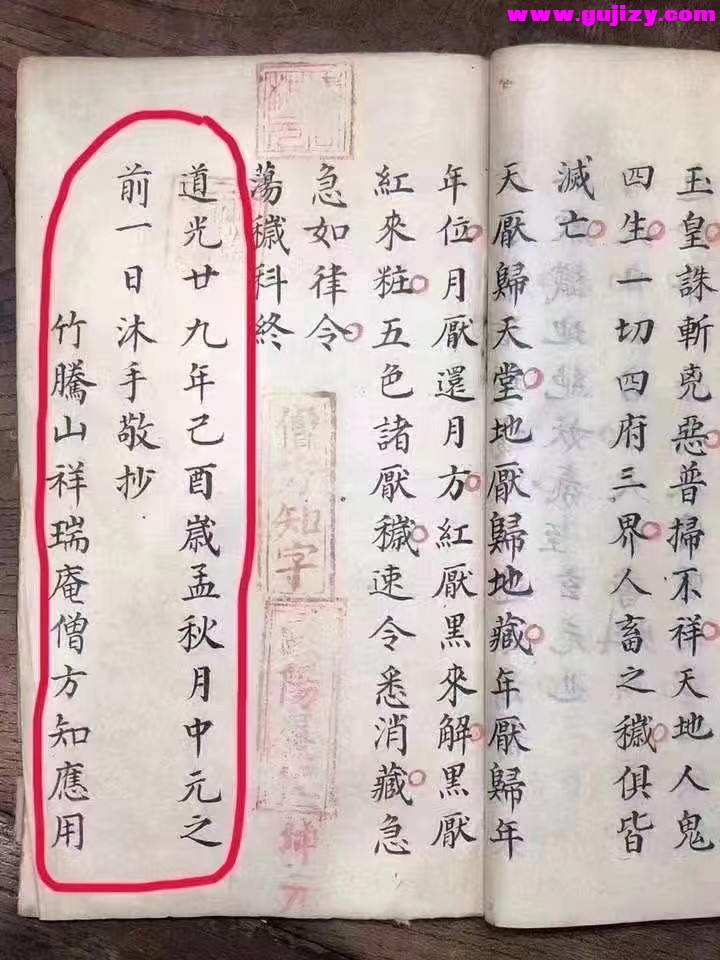 www.gujizy.com
玉皇誅斬兇惡普掃不祥天地人鬼
四生一切四府三界人畜之穢俱皆
滅亡
天厭歸天堂地厭歸地藏年厭歸年
年位月厭還月方紅厭黑來解黑厭
紅來粧五色諸厭穢速令悉消藏急
急如律令
蕩穢科終
僧方知字
道光廿九年己酉歲孟秋月中元之
前一日沐手敬抄
竹騰山祥瑞庵僧方知應用